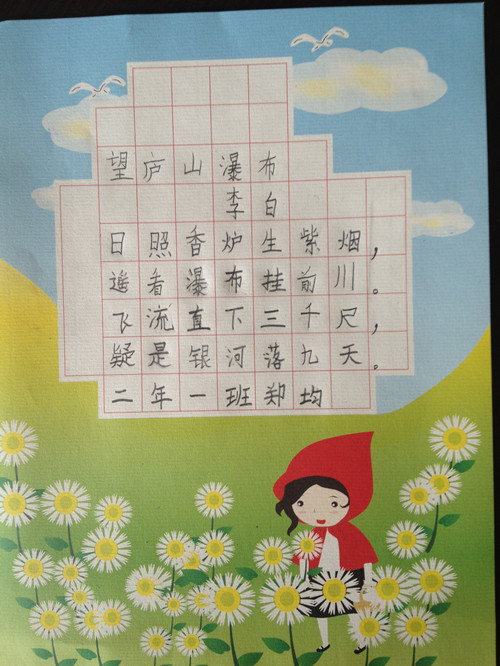 望庐山瀑布
李白
日照香炉生紫烟，
遥看瀑布挂前川。
飞流直下三千尺，
疑是银河落九天。
二年一班郑均